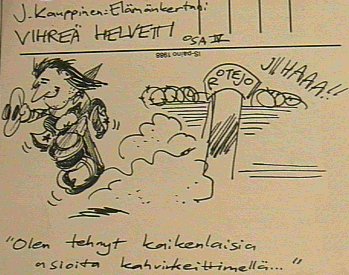 J. Kauppinen: Elämänkertani
VIHREÄ HELVETTI OSA IV
IS-paino 1988
ROTEJO
JIIHAAA!!
"Olen tehnyt kaikenlaisia
asioita kahvinkeittimellä..."